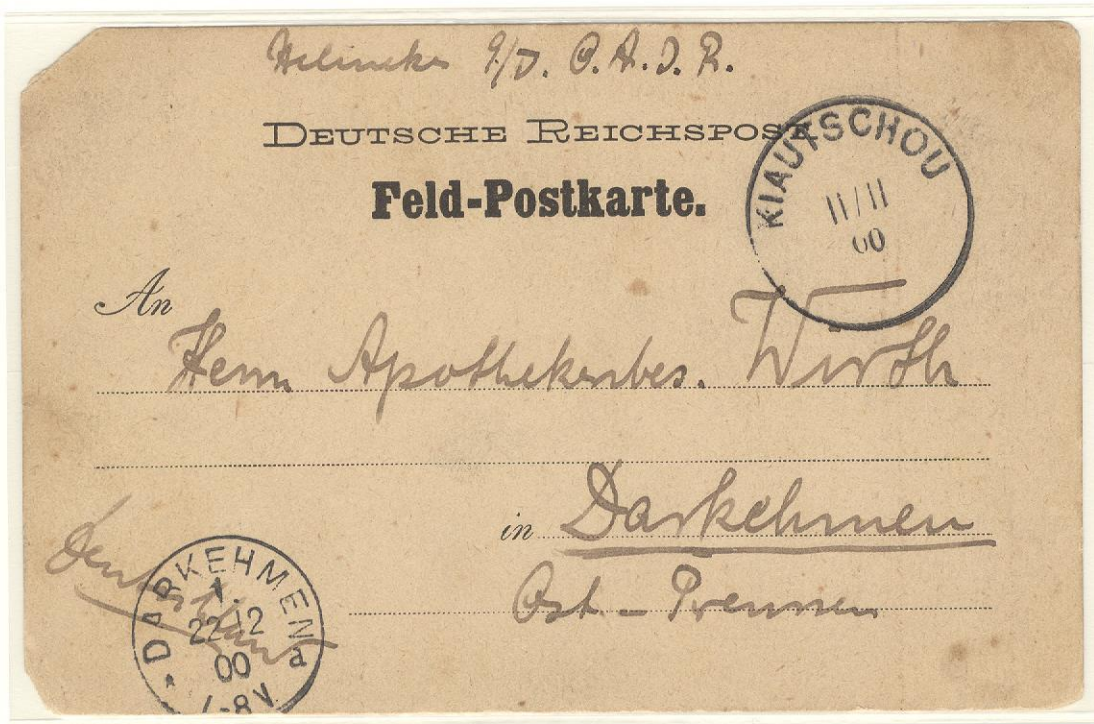 9/J. O. A. J. R.
DEUTSCHE REICHSPOST
Feld-Postkarte.
KIAUTSCHOU
11/11
00
An
Herrn Apothekenbes. Wirth
in Darkehmen
Ost-Preussen
Deutschland
* DARKEHMEN a
1.
22 12
00
7-8V